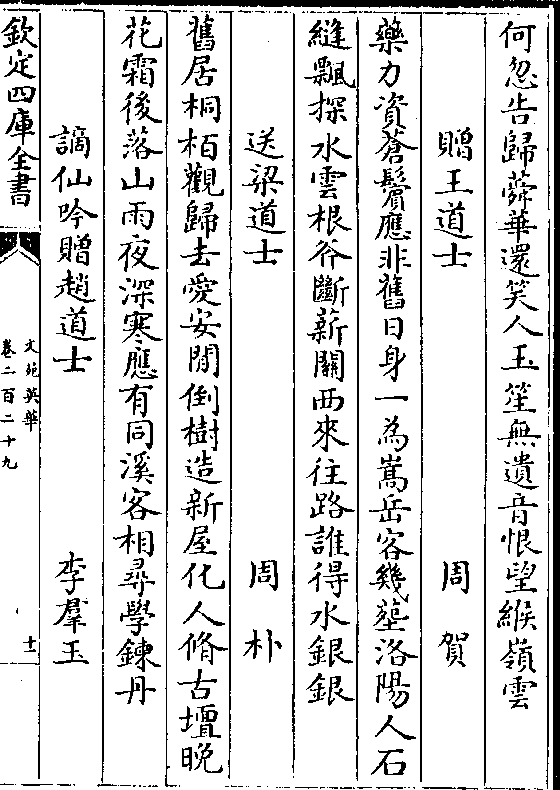 何忽告歸蕣華還笑人玉笙無遺音恨望緱嶺雲
贈王道士　周賀
藥力資蒼鬢應非舊日身一為嵩岳客幾塟洛陽人石
縫瓢探水雲根斧斷薪關西來往路誰得水銀銀
送梁道士　周朴
舊居桐栢觀歸去愛安閒倒樹造新屋化人脩古壇晩
花霜後落山雨夜深寒應有同溪客相尋學鍊丹
謫仙吟贈趙道士　李羣玉
欽定四庫全書
文苑英華
卷二百二十九
十二